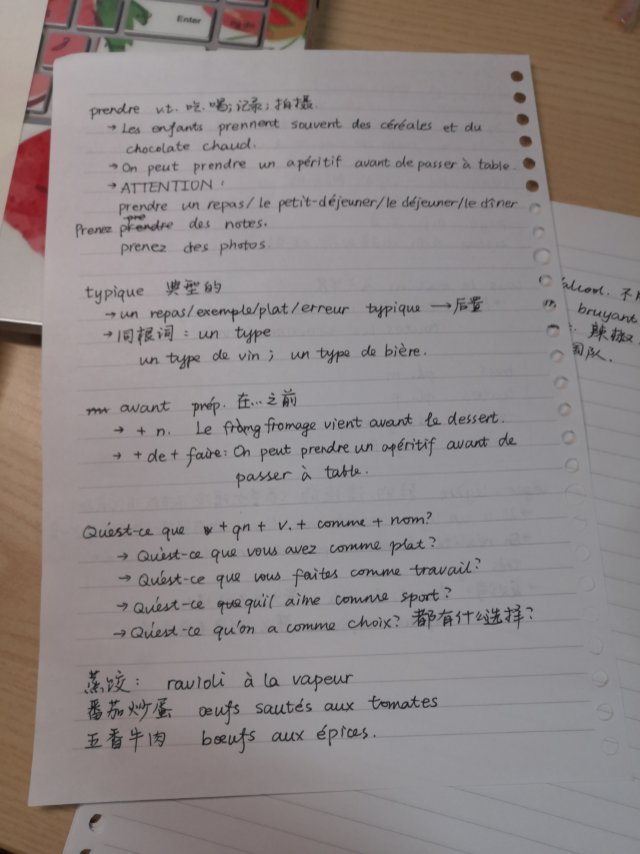 Enter
prendre v.t. 吃.喝;记录;拍摄.
→ Les enfants prennent souvent des céréales et du
chocolate chaud.
→ On peut prendre un apéritif avant de passer à table.
→ ATTENTION :
prendre un repas/ le petit-déjeuner/le déjeuner/le dîner
Prenez prendre des notes.
prenez des photos
typique 典型的
→ un repas/exemple/plat/erreur typique → 后置
→ 同根词: un type
un type de vin ; un type de bière.
avant prép. 在...之前
→ + n. Le fromg fromage vient avant le dessert.
→ + de + faire: On peut prendre un apéritif avant de
passer à table.
Qu'est-ce que + qn + v. + comme + nom?
→ Qu'est-ce que vous avez comme plat?
→ Qu'est-ce que vous faites comme travail?
→ Qu'est-ce que qu'il aime comme sport?
→ Qu'est-ce qu'on a comme choix? 都有什么选择?
蒸饺: ravioli à la vapeur
番茄炒蛋 œufs sautés aux tomates
五香牛肉 bœufs aux épices.
alcool. 不
bruyant
辣椒
团队.